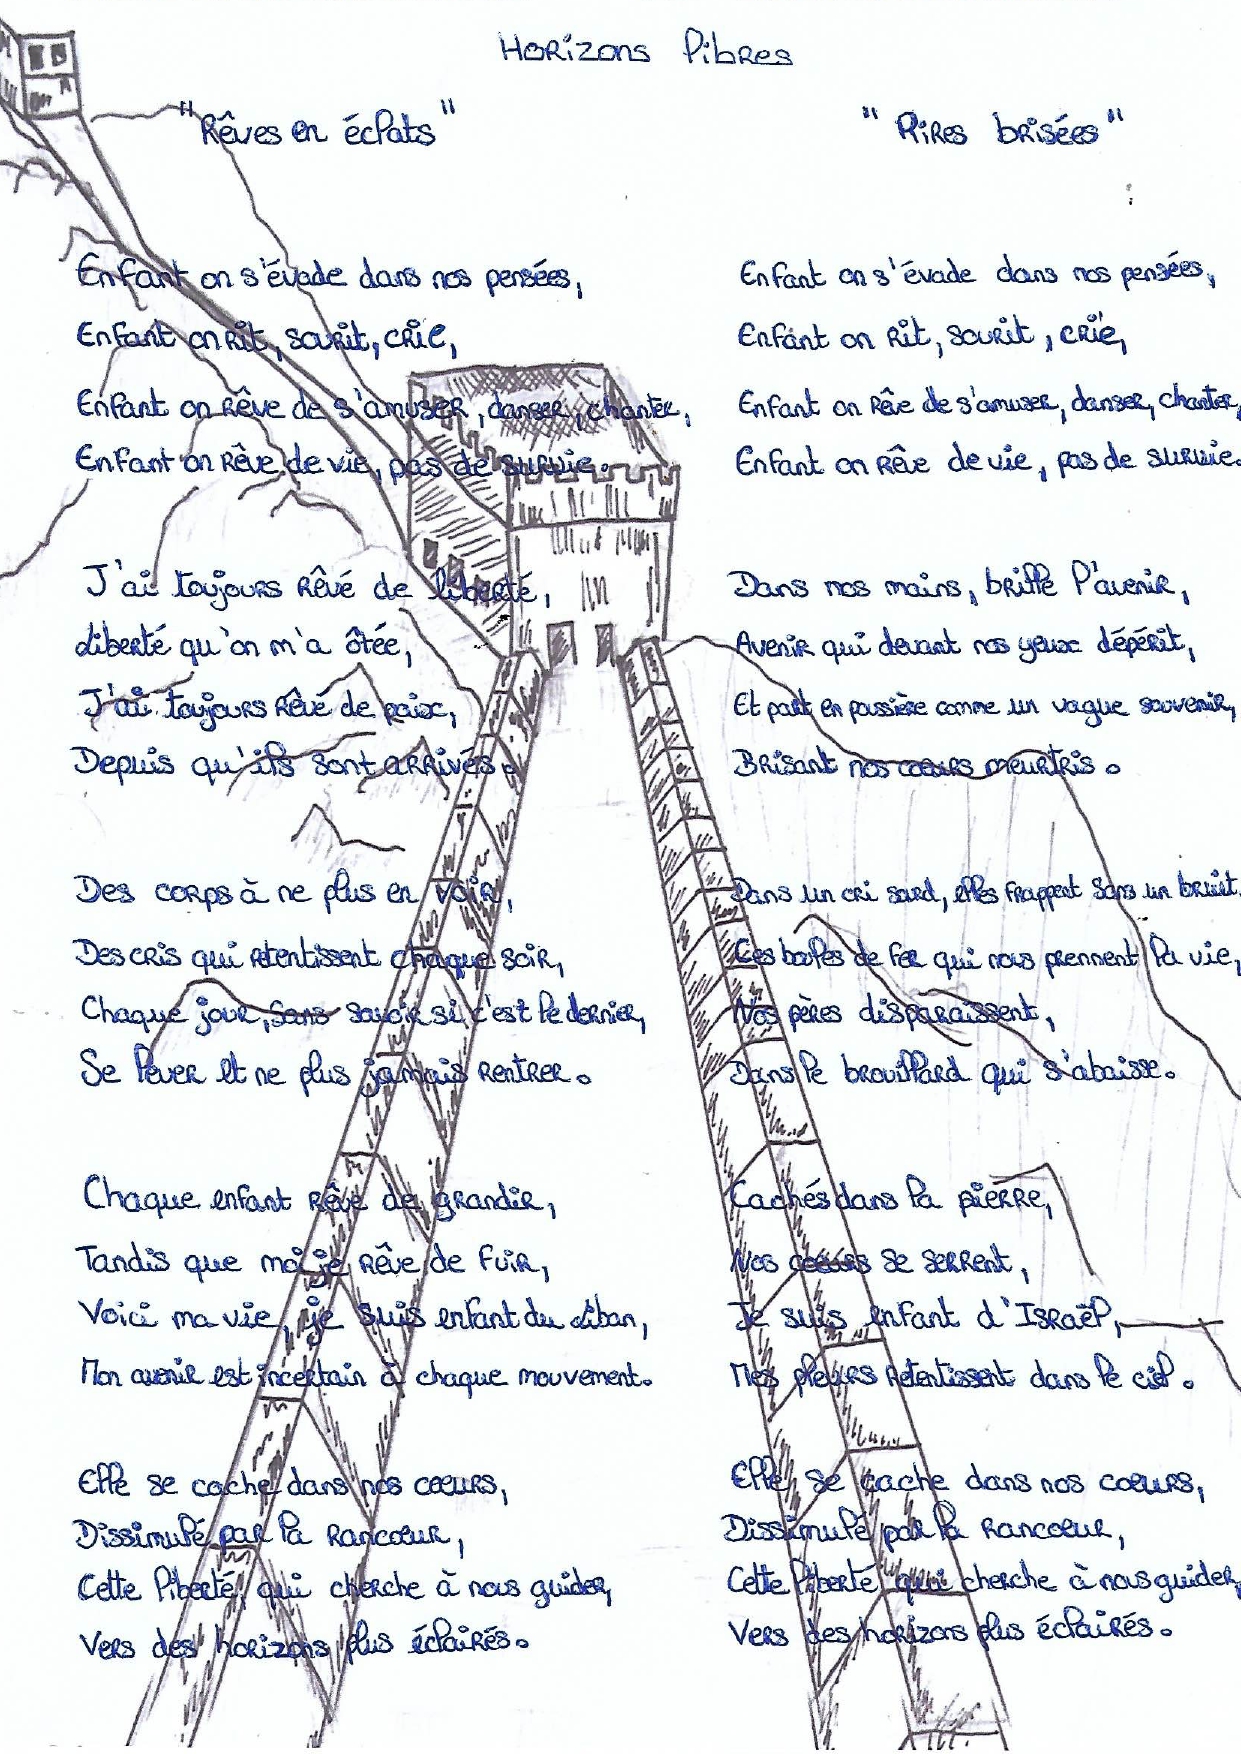 Horizons libres
"Rêves en éclats"
Enfant on s'évade dans nos pensées,
Enfant on rit, sourit, crie,
Enfant on rêve de s'amuser, danser, chanter,
Enfant on rêve de vie, pas de survie.
J'ai toujours rêvé de liberté,
Liberté qu'on m'a ôtée,
J'ai toujours rêvé de paix,
Depuis qu'ils sont arrivés.
Des corps à ne plus en voir,
Des cris qui retentissent chaque soir,
Chaque jour, sans savoir si c'est le dernier,
Se lever et ne plus jamais rentrer.
Chaque enfant rêve de grandir,
Tandis que moi je rêve de fuir,
Voici ma vie, je suis enfant du Liban,
Mon avenir est incertain à chaque mouvement.
Elle se cache dans nos cœurs,
Dissimulé par la rancœur,
Cette liberté, qui cherche à nous guider,
Vers des horizons plus éclairés.
"Rires brisées"
Enfant on s'évade dans nos pensées,
Enfant on rit, sourit, crie,
Enfant on rêve de s'amuser, danser, chanter,
Enfant on rêve de vie, pas de survie.
Dans nos mains, brille l'avenir,
Avenir qui devant nos yeux dépérit,
Et part en poussière comme un vague souvenir,
Brisant nos cœurs meurtris.
Dans un cri sourd, elles frappent sans un bruit,
Ces balles de fer qui nous prennent la vie,
Nos pères disparaissent,
Dans le brouillard qui s'abaisse.
Cachés dans la pierre,
Nos cœurs se serrent,
Je suis enfant d'Israël,
Mes pleurs retentissent dans le ciel.
Elle se cache dans nos cœurs,
Dissimulé par la rancœur,
Cette liberté qui cherche à nous guider,
Vers des horizons plus éclairés.